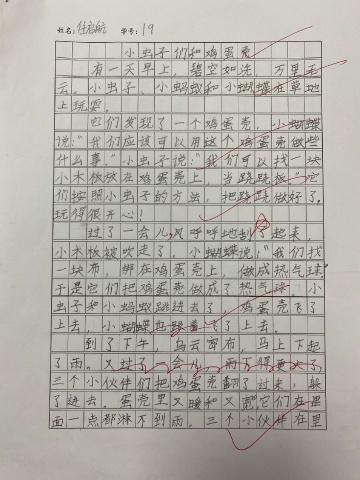 姓名：任启航 学号：19
小虫子们和鸡蛋壳
有一天早上，碧空如洗，万里无
云。小虫子、小蚂蚁和小蝴蝶在草地
上玩耍。
它们发现了一个鸡蛋壳，小蝴蝶
说：“我们应该可以用这个鸡蛋壳做些
什么事。”小虫子说：“我们可以找一块
小木板放在鸡蛋壳上，当跷跷板。”它
们按照小虫子的方法，把跷跷做好了，
玩得很开心！
过了一会儿，风呼呼地刮了起来，
小木板被吹走了，小蝴蝶说：“我们找
一块布，绑在鸡蛋壳上，做成热气球。”
于是它们把鸡蛋壳做成了热气球，小
虫子和小蚂蚁跳进去了，鸡蛋壳飞了
上去，小蝴蝶也跟着飞了上去。
到了下午，乌云密布，马上下起
了雨。又过了一会儿，雨下得更大了，
三个小伙伴们把鸡蛋壳翻了过来，躲
了进去。蛋壳里又暖和又，它们在里
面一点都淋不到雨。三个小伙伴在里